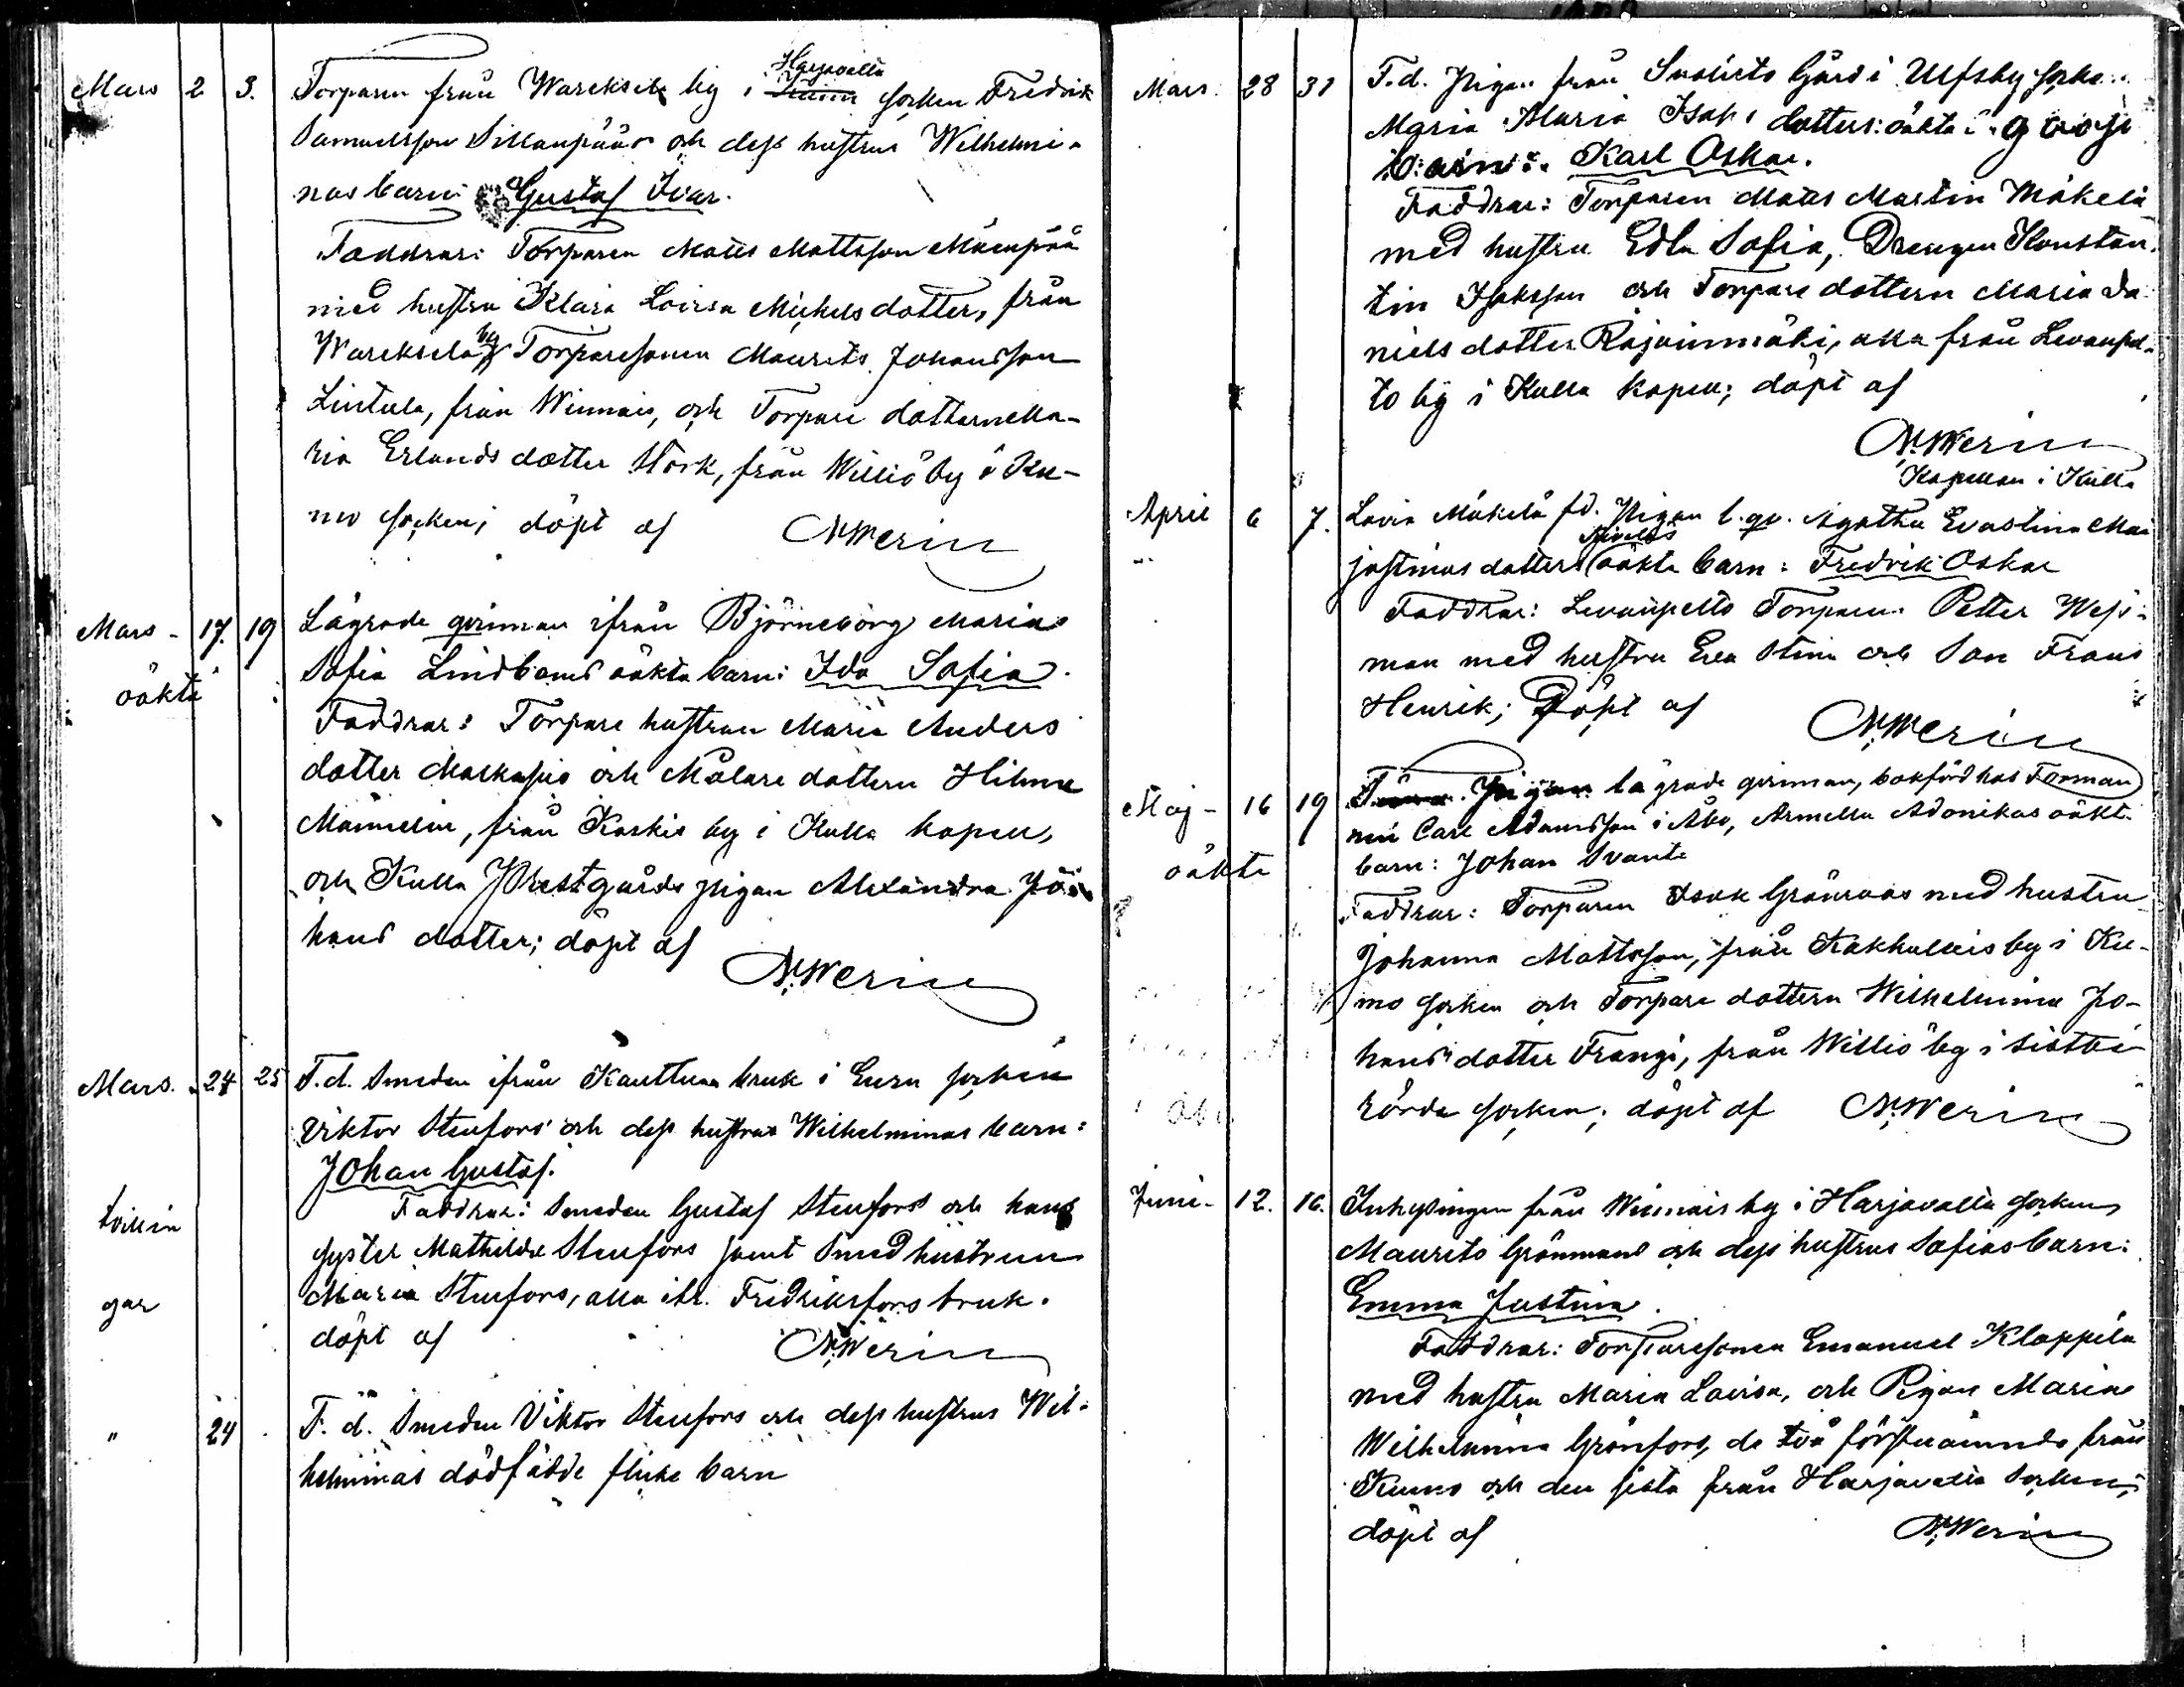 Mars 2 3. Torparen från Wareksela by i Harjavalta Kumo socken Fredrik
Samuelsson Sillanpääs och dess hustrus Wilhelmi-
nas barn: Gustaf Ivar.
Faddrar: Torparen Matts Mattsson Mäenpää
med hustru Klara Lovisa Mickelsdotter, från
Wareksela by Torparesonen Maurits Johansson
Lintula, från Winnais, och Torpare dottern Ma-
ria Erlands dotter Stork, från Williö by i Ku-
mo socken; döpt af NWerin
Mars - 17. 19 Lägrade qvinnan ifrån Björneborg Marias
oäkta Sofia Lindboms oäkta barn: Ida Sofia.
Faddrar: Torpare hustrun Maria Anders
dotter och Målare dottern Hilma
Männelin, från Koskis by i Kulla kapell,
och Kulla Prestgårds pigan Alexandra Jo-
hans dotter; döpt af
N.Werin
Mars. 24 25 F.d. Smeden ifrån Kauttua bruk i Eura socken
Viktor Stenfors och dess hustrus Wilhelminas barn:
Johan Gustaf.
tvillin Faddrar: Smeden Gustaf Stenfors och hans
syster Mathilda Stenfors samt Smedhustrun
gar Maria Stenfors, alla ifr. Fredriksfors bruk.
döpt af N.Werin
" 24 F. d. Smeden Viktor Stenfors och dess hustrus Wil-
helminas dödfödde flicke barn
Mars. 28 31 F.d. Pigan från Suosisto Gård i Ulfsby socken
Maria Maria Isaks dotters: oäkta: gosse
barn: Karl Oskar.
Faddrar: Torparen Matts Martin Mäkelä
med hustru Edla Sofia, Drengen Konstan-
tin Isaksson och Torpare dottern Maria Da-
niels dotter Rajainmäki, alla från Levanpel-
to by i Kulla kapell; döpt af
N.Werin
Kapellan i Kulla
April 6 7. Lovia Mäkelä fd. Pigan l. qv. Agatha Evastina Mai
justinas dotters oäkta barn: Fredrik Oskar
Faddrar: Levanpelto Torparen Petter Wess-
man med hustru Eva Stina och Son Frans
Henrik; Döpt af
N.Werin
Maj - 16 19 Pigan lägrade qvinnan, bokförd hos Forman
nen Carl Adamsson i Åbo, Armella Adonikas oäkt.
oäkta barn: Johan Svante
Faddrar: Torparen Isak Grönroos med hustru
Johanna Mattsson, från Kakkulais by i Ku-
mo socken och Torpare dottern Wilhelmina Jo-
hans dotter Frangi, från Williö by i sistbe-
rörda socken; döpt af N.Werin
Juni - 12. 16. Inhysingen från Winnais by i Harjavalta socken
Maurits Grönmans och dess hustrus Sofias barn:
Emma Justina.
Faddrar: Torparesonen Emanuel Kloppila
med hustru Maria Lovisa, och Pigan Maria
Wilhelmina Grönfors, de två förstnämnda från
Kumo och den sista från Harjavalta socken;
döpt af N.Werin